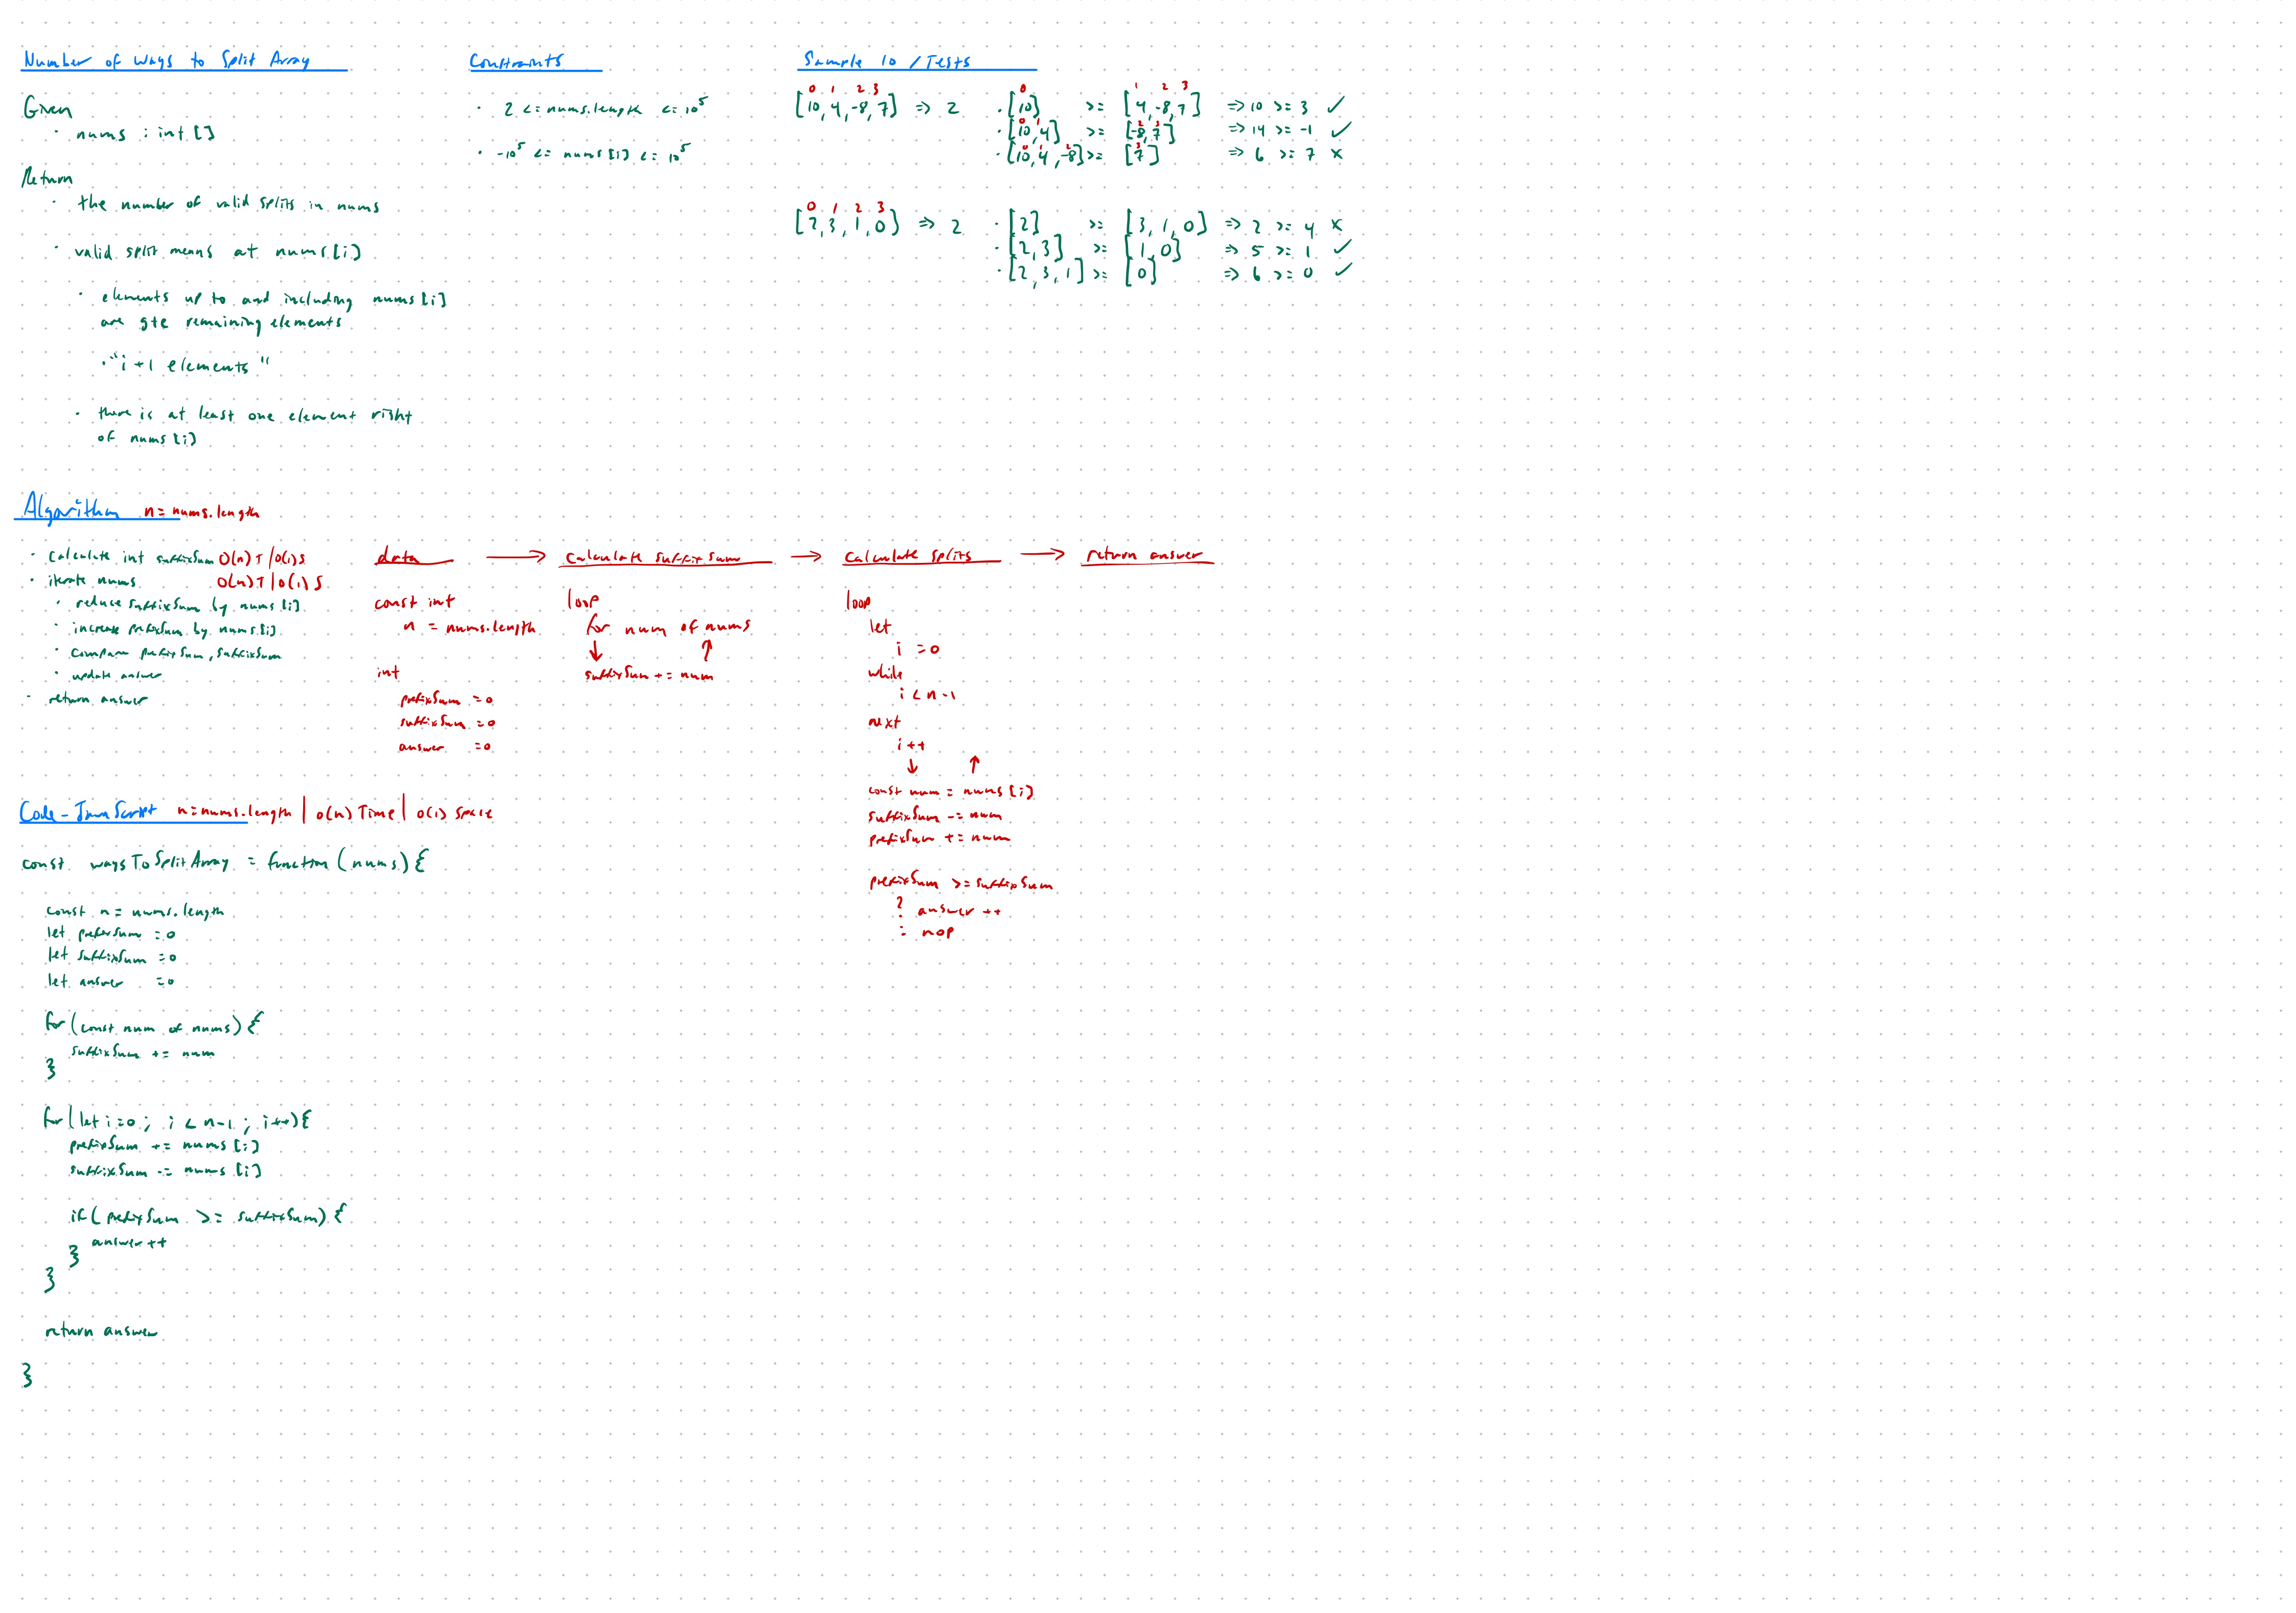 Number of ways to Split Array
Given
· nums : int []
Return
· the number of valid splits in nums
· valid split means at nums[i]
· elements up to and including nums[i]
are gte remaining elements
· "i+1 elements"
· there is at least one element right
of nums[i]
Constraints
· 2 <= nums.length <= 10^5
· -10^5 <= nums[i] <= 10^5
Sample IO / Tests
0 1 2 3
[10, 4, -8, 7] => 2
0 1 2 3
· [10] >= [4, -8, 7] => 10 >= 3 ✓
0 1 2 3
· [10, 4] >= [-8, 7] => 14 >= -1 ✓
0 1 2 3
· [10, 4, -8] >= [7] => 6 >= 7 x
0 1 2 3
[2, 3, 1, 0] => 2
· [2] >= [3, 1, 0] => 2 >= 4 x
· [2, 3] >= [1, 0] => 5 >= 1 ✓
· [2, 3, 1] >= [0] => 6 >= 0 ✓
Algorithm n = nums.length
· calculate int suffixSum O(n) T | O(1) S
· iterate nums O(n) T | O(1) S
· reduce suffixSum by nums[i]
· increase prefixSum by nums[i]
· compare prefixSum, suffixSum
· update answer
· return answer
data → calculate suffixSum → calculate splits → return answer
const int
n = nums.length
int
prefixSum = 0
suffixSum = 0
answer = 0
loop
for num of nums
↓ ↑
suffixSum += num
loop
let
i = 0
while
i < n-1
next
i++
↓ ↑
const num = nums[i]
suffixSum -= num
prefixSum += num
prefixSum >= suffixSum
? answer++
: nop
Code - JavaScript n = nums.length | O(n) Time | O(1) Space
const waysToSplitArray = function(nums) {
const n = nums.length
let prefixSum = 0
let suffixSum = 0
let answer = 0
for (const num of nums) {
suffixSum += num
}
for (let i=0; i < n-1; i++) {
prefixSum += nums[i]
suffixSum -= nums[i]
if (prefixSum >= suffixSum) {
answer++
}
}
return answer
}